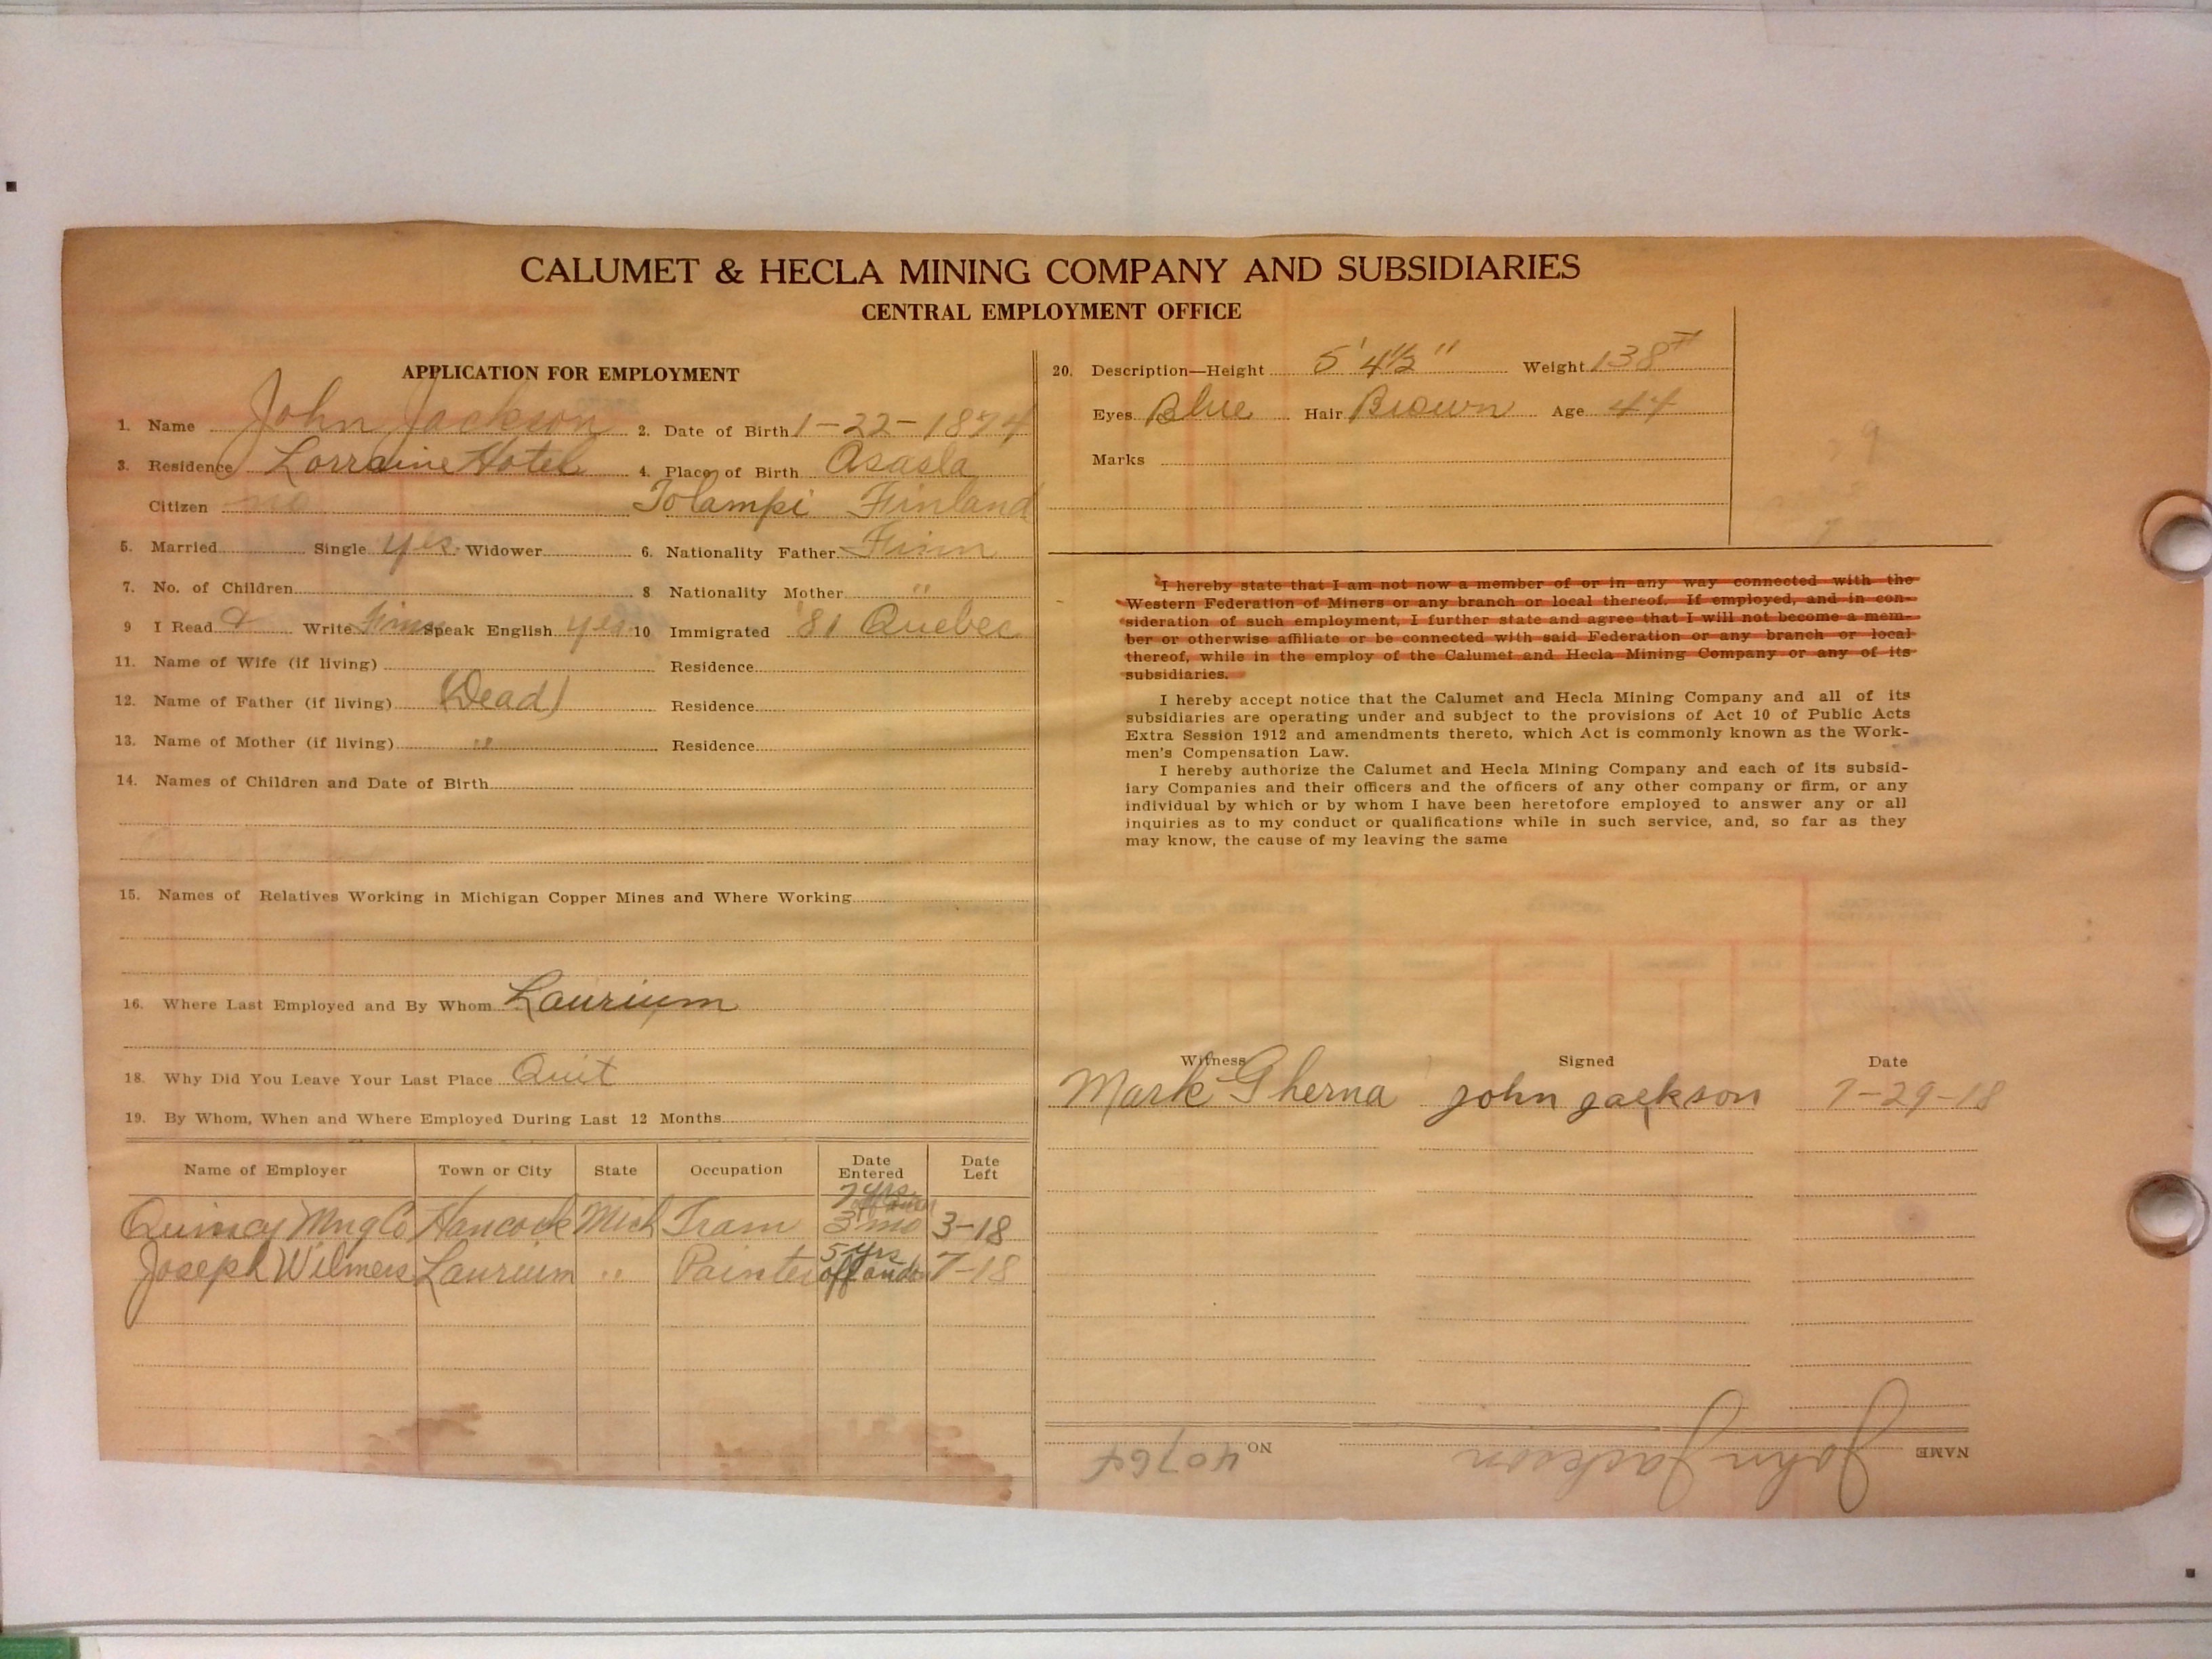 CALUMET & HECLA MINING COMPANY AND SUBSIDIARIES
CENTRAL EMPLOYMENT OFFICE
APPLICATION FOR EMPLOYMENT
1. Name John Jackson 2. Date of Birth 1-22-1874
3. Residence Lorraine Hotel 4. Place of Birth Asasla
Citizen no Tolampi Finland
5. Married Single yes Widower 6. Nationality Father Finn
7. No. of Children 8 Nationality Mother "
9 I Read & Write Finn Speak English yes 10 Immigrated '81 Quebec
11. Name of Wife (if living) Residence
12. Name of Father (if living) (Dead) Residence
13. Name of Mother (if living) " Residence
14. Names of Children and Date of Birth
15. Names of Relatives Working in Michigan Copper Mines and Where Working
16. Where Last Employed and By Whom Laurium
18. Why Did You Leave Your Last Place Quit
19. By Whom, When and Where Employed During Last 12 Months
Name of Employer Town or City State Occupation Date Entered Date Left
Quincy Mng Co Hancock Mich Tram 7 yrs 3 mo 3-18
Joseph Wilmers Laurium " Painter 5 yrs off and on 7-18
20. Description—Height 5' 4½" Weight 138#
Eyes Blue Hair Brown Age 44
Marks
I hereby state that I am not now a member of or in any way connected with the
Western Federation of Miners or any branch or local thereof. If employed, and in con-
sideration of such employment, I further state and agree that I will not become a mem-
ber or otherwise affiliate or be connected with said Federation or any branch or local
thereof, while in the employ of the Calumet and Hecla Mining Company or any of its
subsidiaries.
I hereby accept notice that the Calumet and Hecla Mining Company and all of its
subsidiaries are operating under and subject to the provisions of Act 10 of Public Acts
Extra Session 1912 and amendments thereto, which Act is commonly known as the Work-
men's Compensation Law.
I hereby authorize the Calumet and Hecla Mining Company and each of its subsid-
iary Companies and their officers and the officers of any other company or firm, or any
individual by which or by whom I have been heretofore employed to answer any or all
inquiries as to my conduct or qualifications while in such service, and, so far as they
may know, the cause of my leaving the same
Witness Signed Date
Mark Gherna john jackson 7-29-18
NAME John Jackson NO 40764